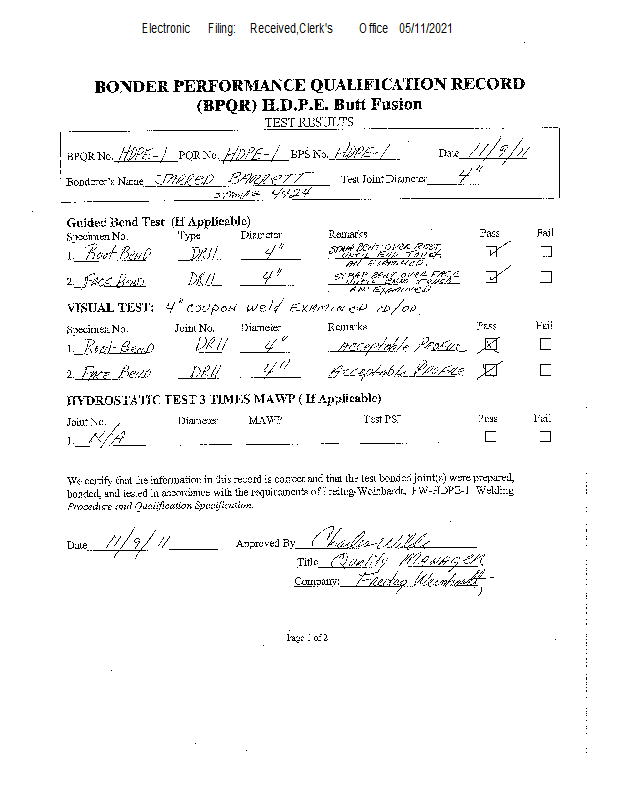 Electronic Filing: Received,Clerk's Office 05/11/2021
BONDER PERFORMANCE QUALIFICATION RECORD
(BPQR) H.D.P.E. Butt Fusion
TEST RESULTS
BPQR No. HDPE-1 PQR No. HDPE-1 BPS No. HDPE-1 Date 11/9/11
Bonderer's Name JARRED BARRETT Test Joint Diameter 4"
STAMP# 4424
Guided Bend Test (If Applicable)
Specimen No. Type Diameter Remarks Pass Fail
1. Root Bend DR11 4" STRAP BENT OVER ROOT UNTIL END TOUCH AN EXAMINED.
2. Face Bend DR11 4" STRAP BENT OVER FACE UNTIL ENDS TOUCH AN EXAMINED
VISUAL TEST: 4" coupon Weld EXAMINED ID/OD.
Specimen No. Joint No. Diameter Remarks Pass Fail
1. Root-Bend DR11 4" Acceptable Profile
2. Face Bend DR11 4" Acceptable Profile
HYDROSTATIC TEST 3 TIMES MAWP ( If Applicable)
Joint No. Diameter MAWP Test PSI Pass Fail
1. N/A
We certify that the information in this record is correct and that the test bonded joint(s) were prepared,
bonded, and tested in accordance with the requirements of Freitag-Weinhardt, FW-HDPE-1 Welding
Procedure and Qualification Specification.
Date 11/9/11 Approved By Charles
Title Quality MANAGER
Company: Freitag Weinhardt
Page 1 of 2